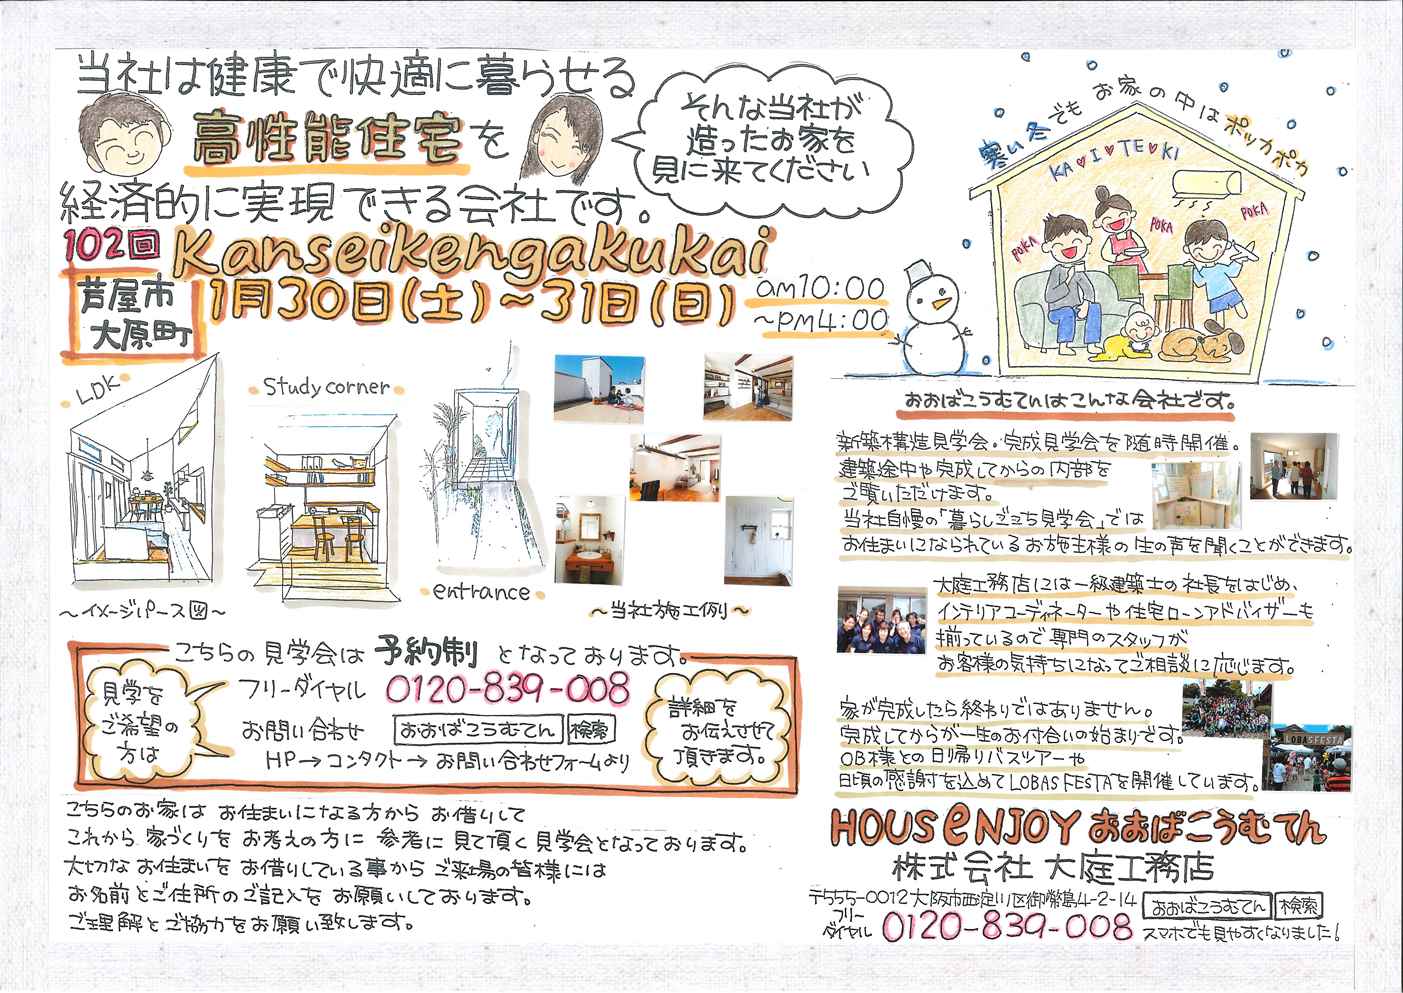 当社は健康で快適に暮らせる
高性能住宅を
経済的に実現できる会社です。
そんな当社が
造ったお家を
見に来てください
寒い冬でもお家の中はポッカポカ
KA♥I♥TE♥KI
POKA
POKA
POKA
102回 Kanseikengakukai
芦屋市
大原町
1月30日(土)～31日(日)
am10:00
～pm4:00
LDK
Study corner
entrance
～イメージパース図～
～当社施工例～
こちらの見学会は 予約制 となっております。
見学を
ご希望の
方は
フリーダイヤル 0120-839-008
お問い合わせ おおばこうむてん 検索
HP→コンタクト→お問い合わせフォームより
詳細を
お伝えさせて
頂きます。
こちらのお家は お住まいになる方から お借りして
これから 家づくりを お考えの方に 参考に 見て頂く 見学会となっております。
大切な お住まいを お借りしている事から ご来場の皆様には
お名前とご住所のご記入を お願いしております。
ご理解とご協力をお願い致します。
おおばこうむてんはこんな会社です。
新築構造見学会・完成見学会を随時開催。
建築途中や完成してからの内部を
ご覧いただけます。
当社自慢の「暮らしごこち見学会」では
お住まいになられているお施主様の生の声を聞くことができます。
大庭工務店には一級建築士の社長をはじめ、
インテリアコーディネーターや住宅ローンアドバイザーも
揃っているので専門のスタッフが
お客様の気持ちになってご相談に応じます。
家が完成したら終わりではありません。
完成してからが一生のお付合いの始まりです。
OB様との日帰りバスツアーや
日頃の感謝を込めてLOBAS FESTAを開催しています。
LOBASFESTA
HOUSeNJOY おおばこうむてん
株式会社 大庭工務店
〒555-0012 大阪市西淀川区御幣島4-2-14
おおばこうむてん 検索
フリー
ダイヤル 0120-839-008
スマホでも見やすくなりました!